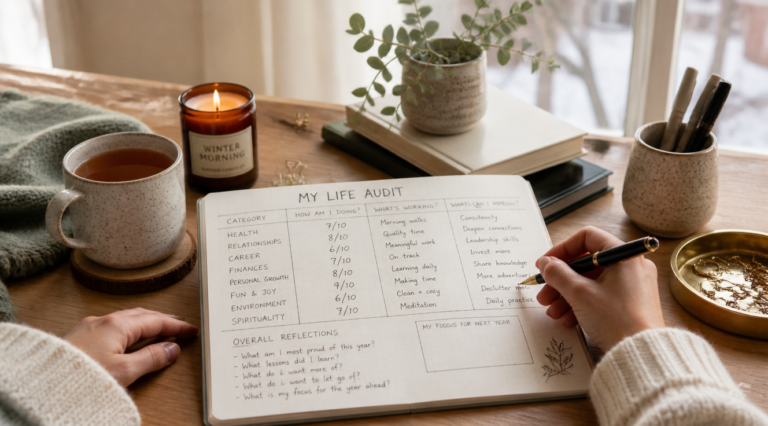 WINTER
MORNING
MY LIFE AUDIT
CATEGORY HOW AM I DOING? WHAT'S WORKING?
HEALTH 7/10 Morning walks Consistency
RELATIONSHIPS 8/10 Quality time Deepen connections
CAREER 6/10 Meaningful work Leadership skills
FINANCES 7/10 On track Invest more
PERSONAL GROWTH 8/10 Learning daily Share knowledge
FUN & JOY 9/10 Making time More adventure
ENVIRONMENT 6/10 Clean + cozy Declutter
SPIRITUALITY 7/10 Meditation Daily practice
OVERALL REFLECTIONS
- What am I most proud of this year?
- What lessons did I learn?
- What do I want more of?
- What do I want to let go of?
- What is my focus for the year ahead?
MY FOCUS FOR NEXT YEAR